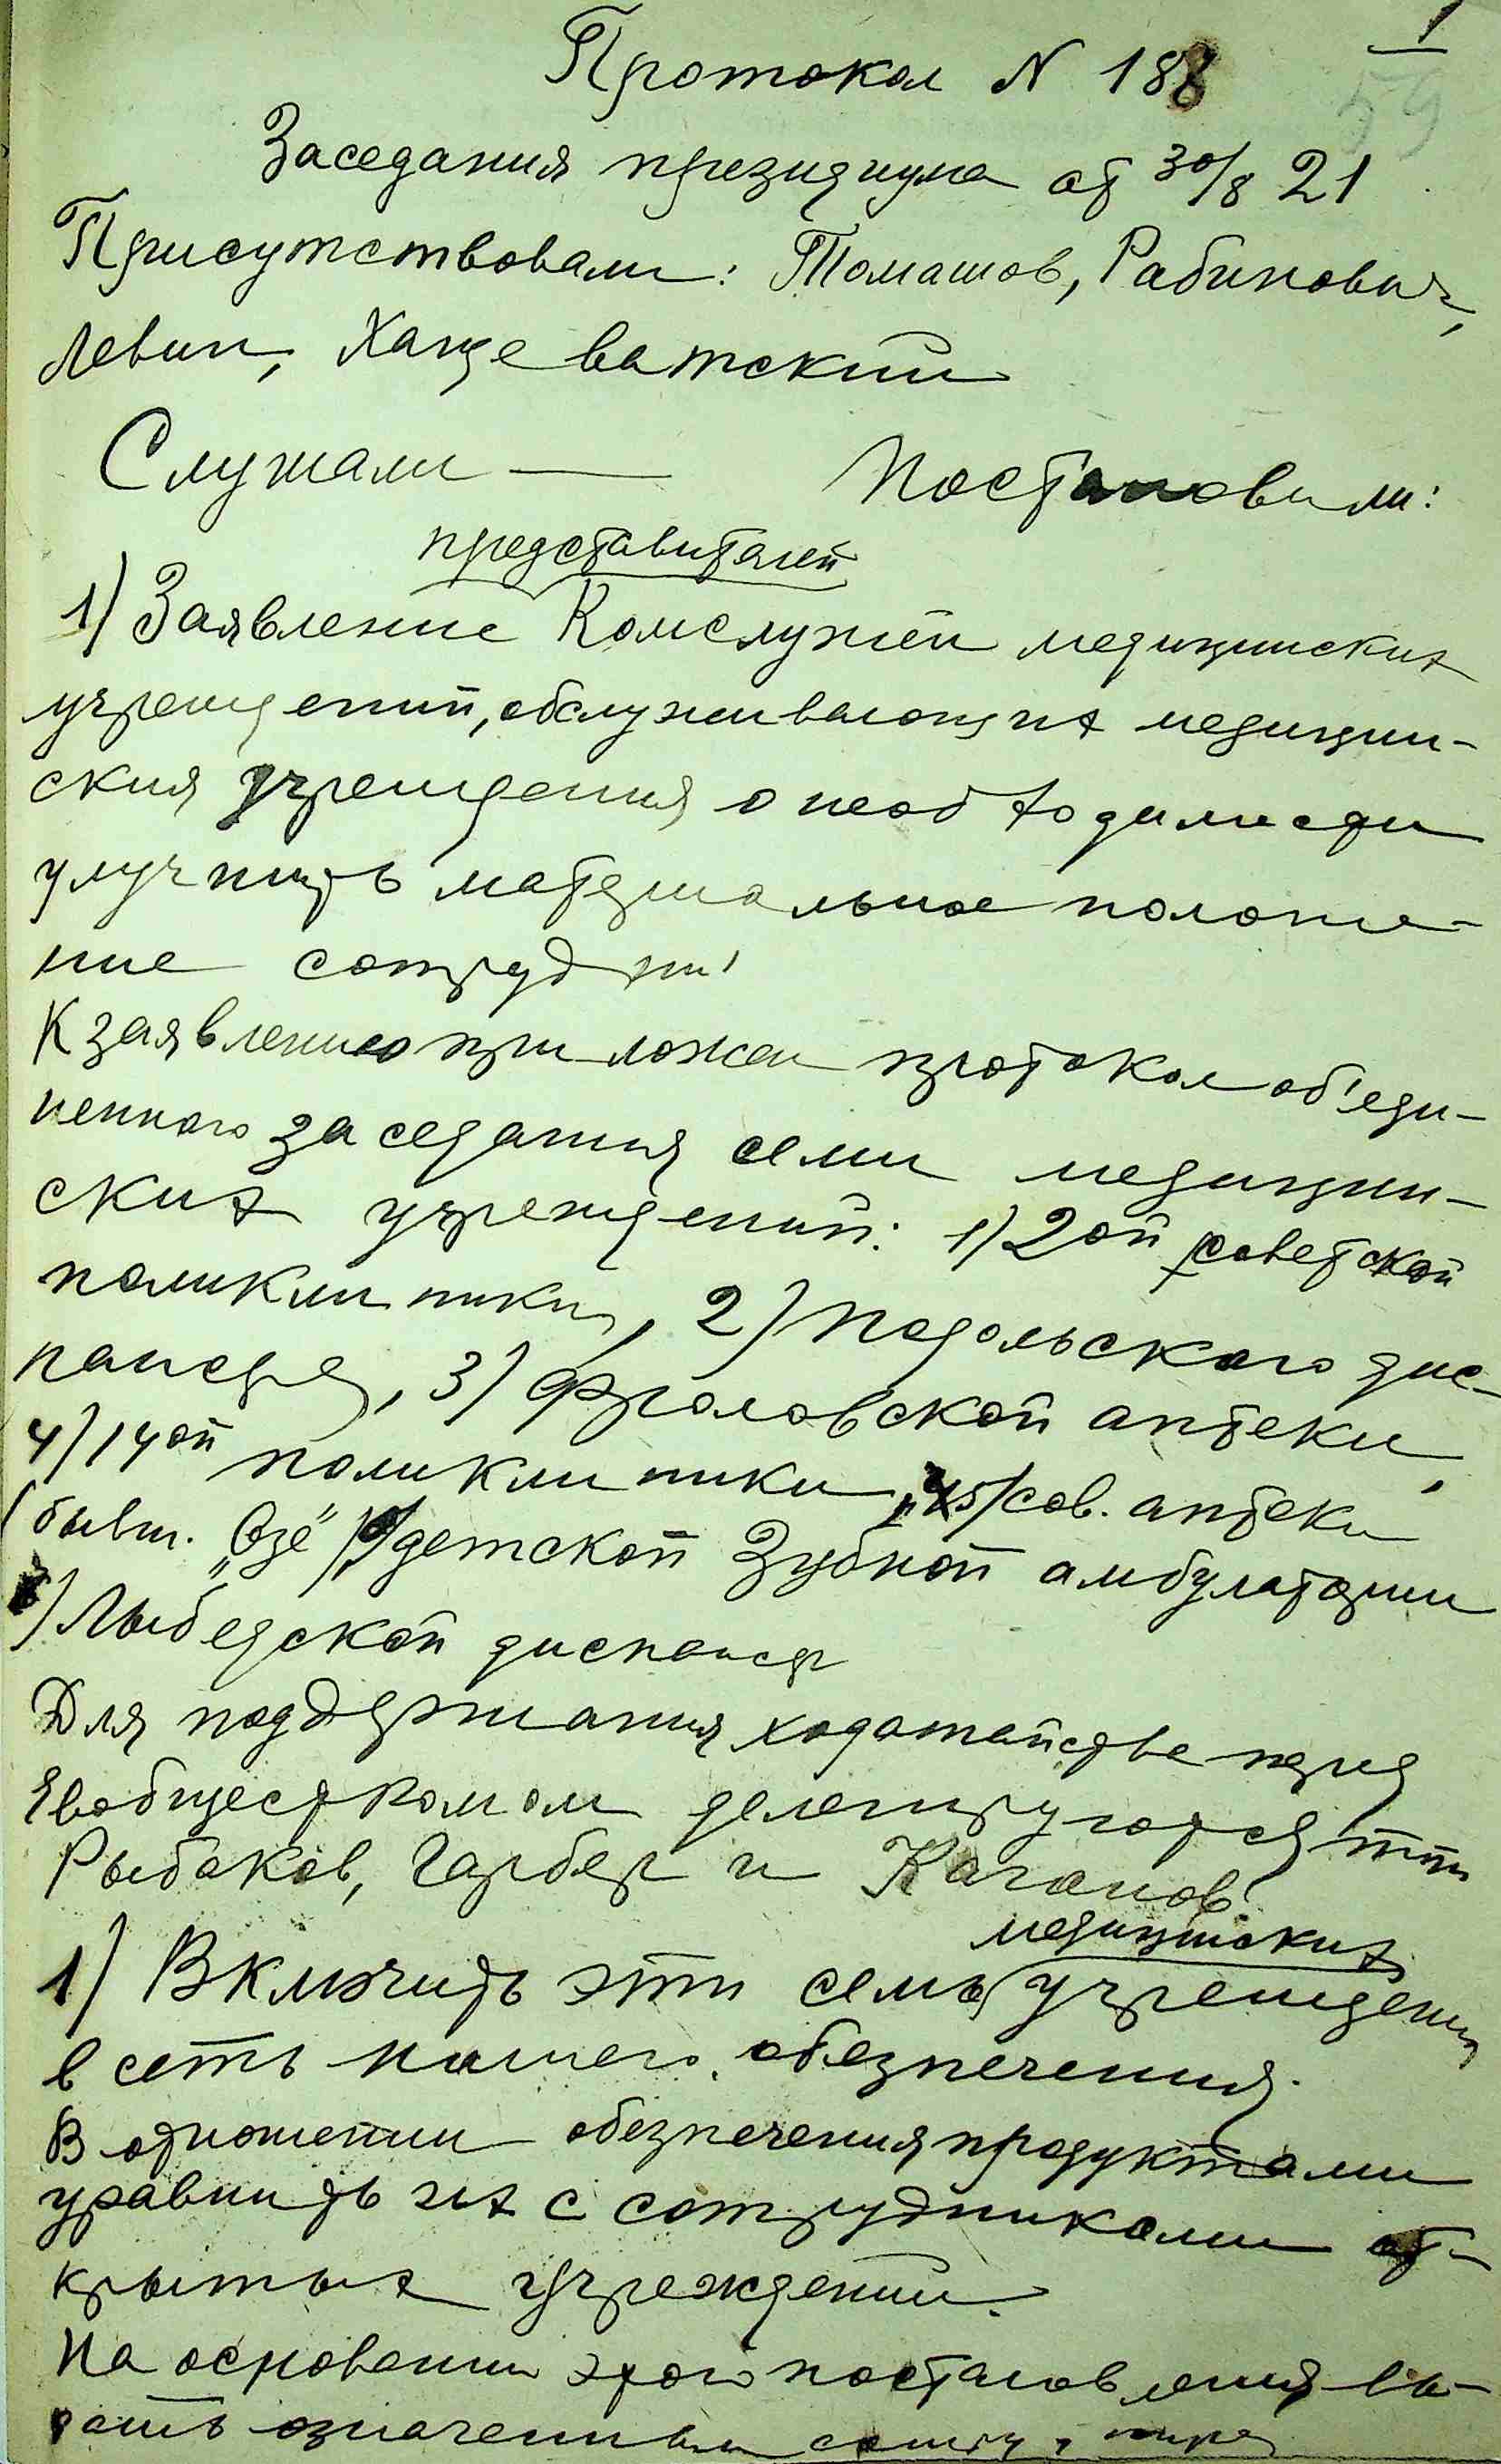 1
59
Протокол N 188
Заседания президиума от 30/8 21
Присутствовали: Томашов, Рабинович,
Левин, Хащеватский
Слушали — Постановили:
представителей
1) Заявление Комслужей медицинских
учреждений, обслуживающих медицин-
ския учреждения о необходимости
улучшить материальное положе-
ние сотрудни
К заявлению приложен протокол об'еди-
ненного заседания семи медицин-
ских учреждений: 1) 2ой советской
поликлиники, 2) Подольского дис-
пансера, 3) Фроловской аптеки,
4) 14ой поликлиники, 5) сов. аптеки
(бывш. „Озе") 6) детской зубной амбулатории
7) Лыбедской диспансер
Для поддержания ходатайства перед
Евобщесткомом делегируются тт
Рыбаков, Гарбер и Каганов.
медицинских
1) Включить эти семь учреждения
в сеть нашего обезпечения.
В отношении обезпечения продуктами
уравнить их с сотрудниками от-
крытых учреждений.
На основании этого постановления вы-
дать означенным